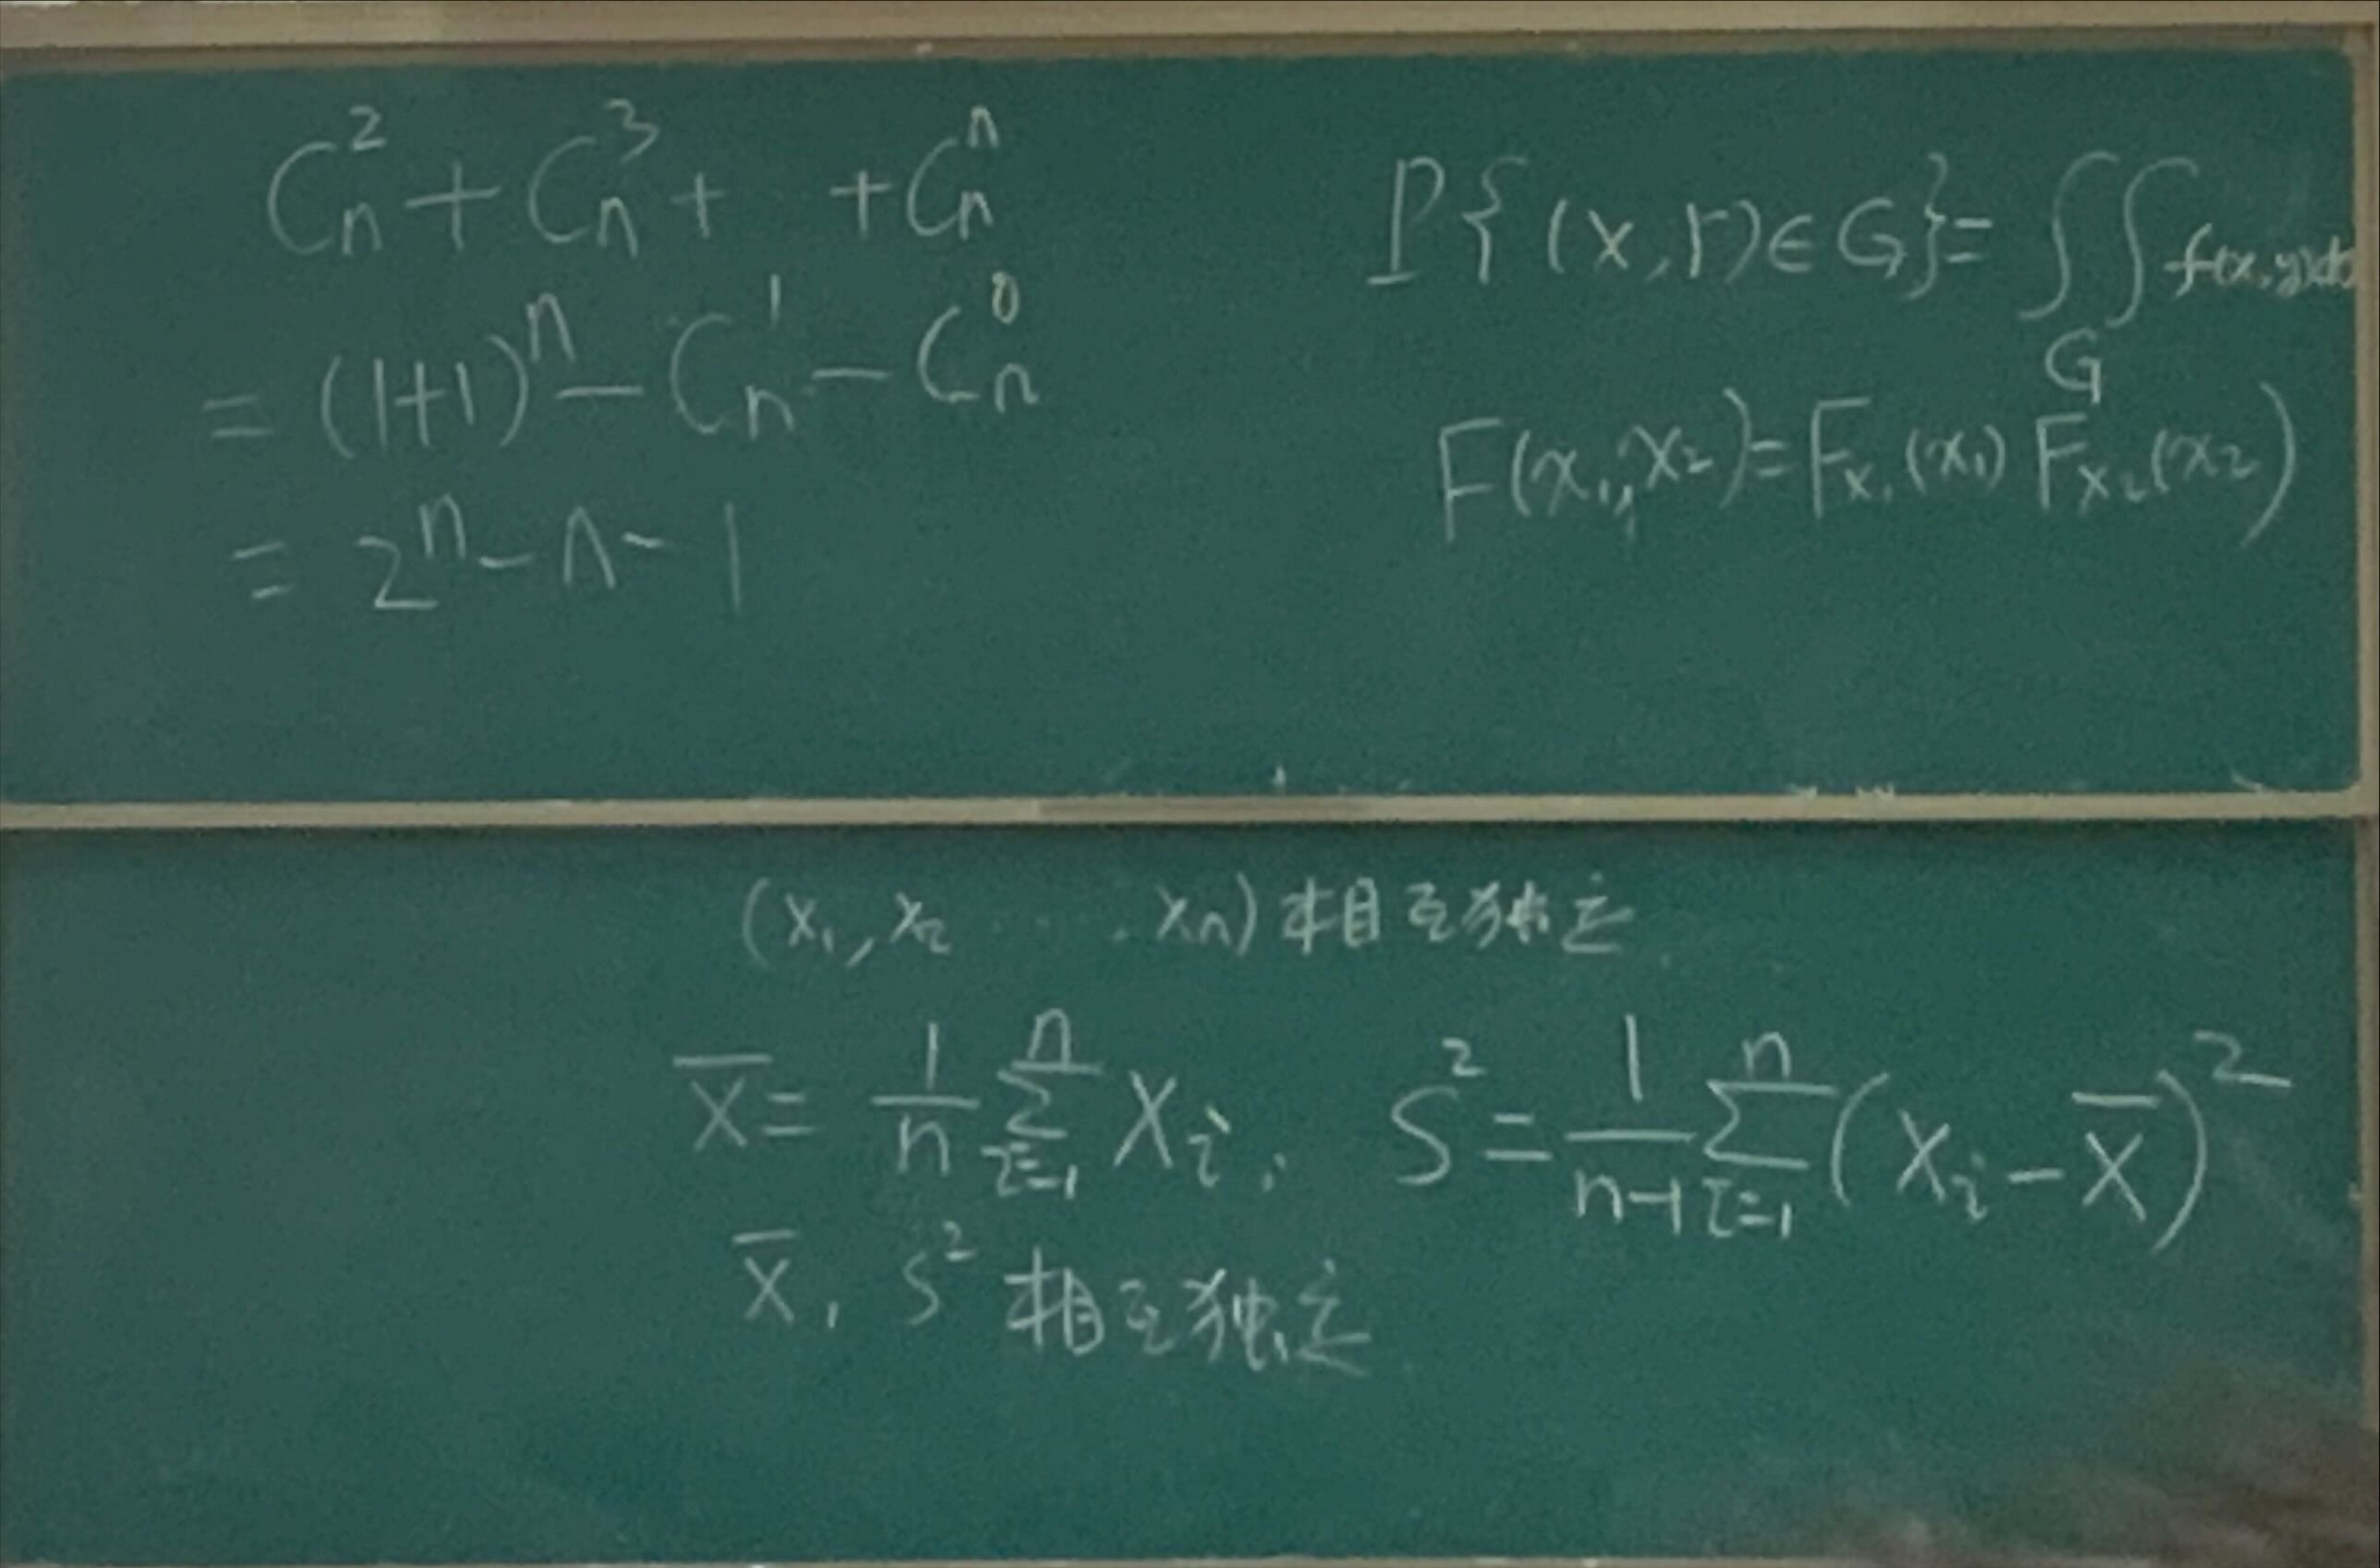 C_n^2 + C_n^3 + + C_n^n
= (1+1)^n - C_n^1 - C_n^0
= 2^n - n - 1
P{(X,Y)∈G} = ∬_G f(x,y)d
F(x_1,x_2) = F_{X_1}(x_1) F_{X_2}(x_2)
(X_1, X_2 ···· X_n) 相互独立
\overline{X} = \frac{1}{n} \sum_{i=1}^{n} X_i, S^2 = \frac{1}{n-1} \sum_{i=1}^{n} (X_i - \overline{X})^2
\overline{X}, S^2 相互独立